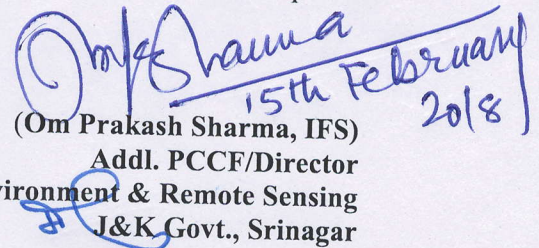 OmpSharma
15th February
2018
(Om Prakash Sharma, IFS)
Addl. PCCF/Director
vironment & Remote Sensing
J&K Govt., Srinagar